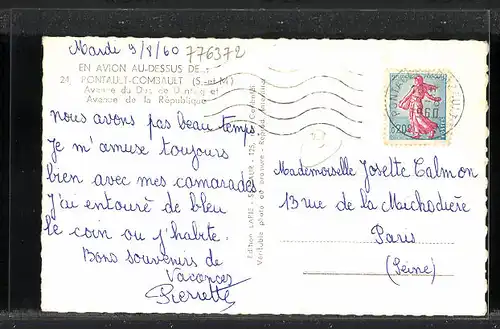 Mardi 9/8/60 776372
EN AVION AU-DESSUS DE...
24. PONTAULT-COMBAULT (S.-et-M.)
Avenue du Duc de Dantzig et
Avenue de la République
nous avons pas beau temps
Je m'amuse toujours
bien avec mes camarades
J'ai entouré de bleu
le coin ou j'habite.
Bons souvenirs de
Vacances
Pierrette
Edition LAPIE - St-MAUR
Véritable photo au bromure - Reprod. interdite
0,20
Mademoiselle Josette Calmon
13 rue de la Michodière
Paris
(Seine)